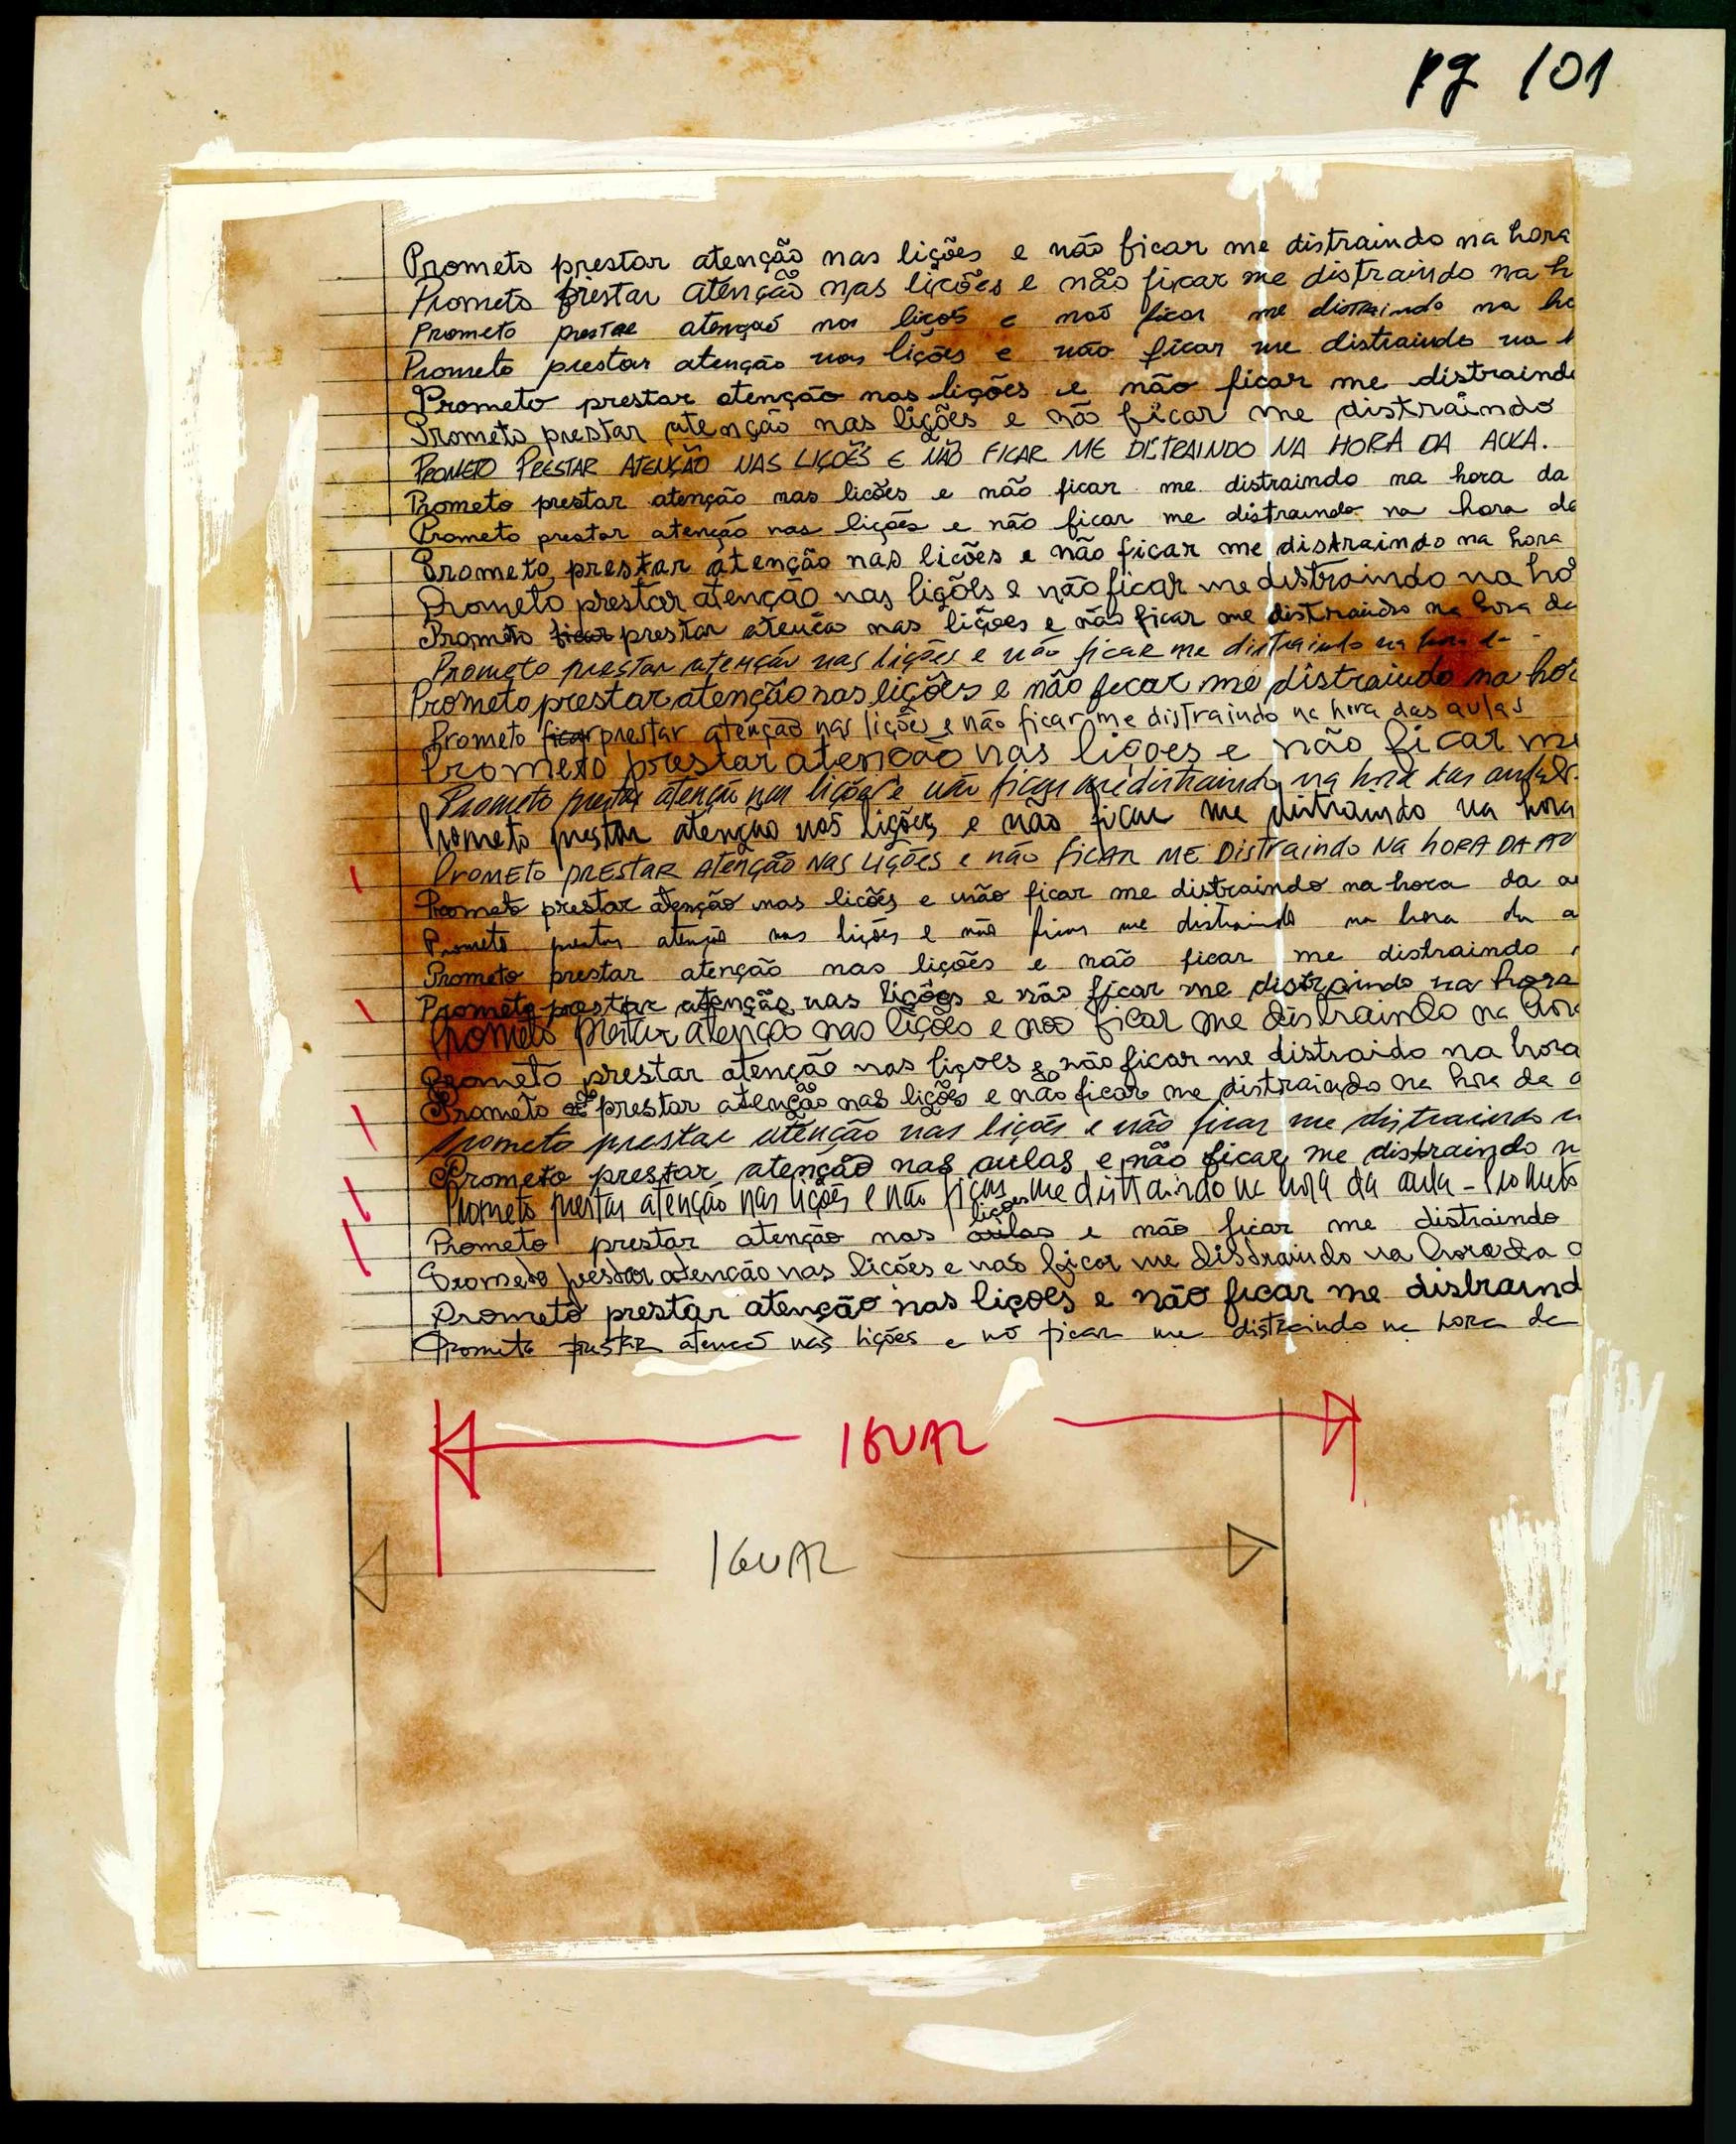 pg 101
Prometo prestar atenção nas lições e não ficar me distraindo na hora
Prometo prestar atenção nas lições e não ficar me distraindo na h
Prometo prestar atenção nas liços e não ficar me distraindo na ho
Prometo prestar atenção nas lições e não ficar me distraindo na h
Prometo prestar atenção nas lições e não ficar me distraind
Prometo prestar atenção nas lições e não ficar me distraindo
PROMETO PRESTAR ATENÇÃO NAS LIÇÕES E NÃO FICAR ME DISTRAINDO NA HORA DA AULA.
Prometo prestar atenção nas licões e não ficar me distraindo na hora da
Prometo prestar atenção nas lições e não ficar me distraindo na hora da
Prometo prestar atenção nas licões e não ficar me distraindo na hora
Prometo prestar atenção nas lições e não ficar me distraindo na ho
Prometo ficar prestar atencão nas lições e não ficar me distraindo na hora da
Prometo prestar atenção nas lições e não ficar me distraindo na hora d
Prometo prestar atenção nas lições e não ficar me distraindo na ho
Prometo ficar prestar atenção nas lições e não ficar me distraindo na hora das aulas
Prometo prestar atencão nas liçoes e não ficar me
Prometo prestar atenção nas lições e não ficar me distraindo na hora das aulas.
Prometo prestar atenção nas lições e não ficar me distraindo na hora
PROMETO PRESTAR ATENÇÃO NAS LIÇÕES E NÃO FICAR ME DISTRAINDO NA HORA DA AU
Prometo prestar atenção nas licões e não ficar me distraindo na hora da a
Prometo prestar atenção nas lições e não ficar me distraindo na hora da a
Prometo prestar atenção nas lições e não ficar me distraindo
Prometo prestar atenção nas lições e não ficar me distraindo na hora
Prometo prestar atenção nas lições e não ficar me distraindo na hora
Prometo prestar atenção nas liçoes e não ficar me distraido na hora
Prometo prestar atenção nas lições e não ficar me distraindo na hora da a
Prometo prestar atenção nas lições e não ficar me distraindo n
Prometo prestar atenção nas aulas e não ficar me distraindo n
Prometo prestar atenção nas lições e não ficar me distraindo na hora da aula - Prometo
lições
Prometo prestar atenção nas aulas e não ficar me distraindo
Prometo prestar atencão nas licões e não ficar me distraindo na hora da a
Prometo prestar atenção nas liçoes e não ficar me distraind
Prometo prestar atencò nas lições e nò ficar me distraindo na hora da
IGUAL
IGUAL